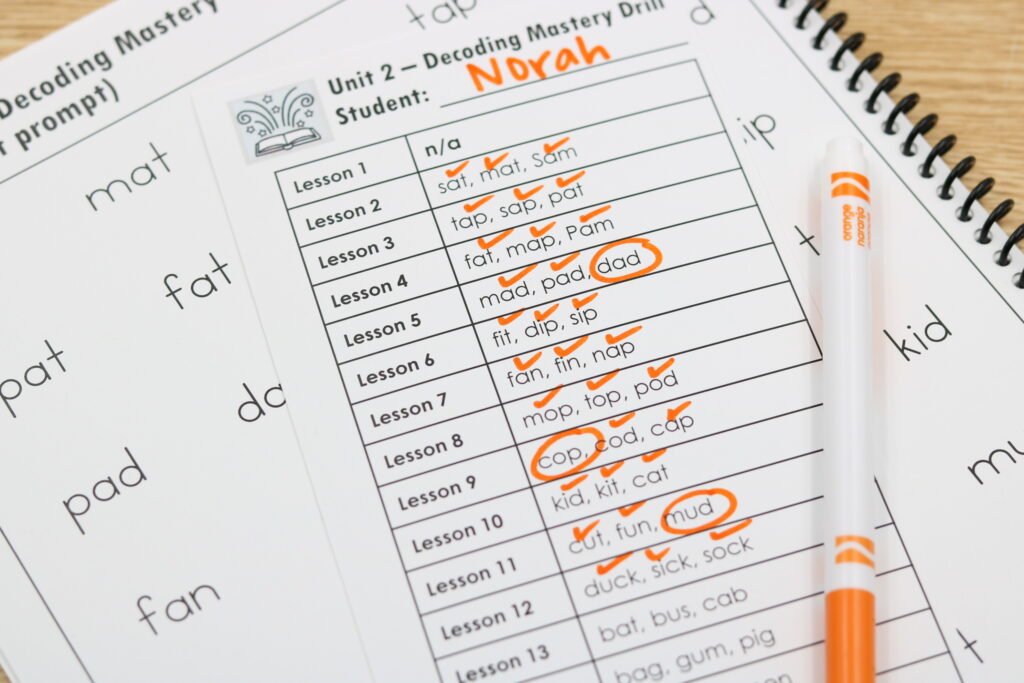 Decoding Mastery
prompt)
mat
fat
pat
pad
fan
tap
Unit 2 – Decoding Mastery Drill
Student: Norah
Lesson 1 n/a
Lesson 2 sat, mat, Sam
Lesson 3 tap, sap, pat
Lesson 4 fat, map, Pam
Lesson 5 mad, pad, dad
Lesson 6 fit, dip, sip
Lesson 7 fan, fin, nap
Lesson 8 mop, top, pod
Lesson 9 cop, cod, cap
Lesson 10 kid, kit, cat
Lesson 11 cut, fun, mud
Lesson 12 duck, sick, sock
Lesson 13 bat, bus, cab
bag, gum, pig
kid
orange
naranja